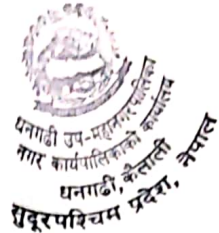 धनगढी उप-महानगरपालिका
नगर कार्यपालिकाको कार्यालय
धनगढी, कैलाली
सुदूरपश्चिम प्रदेश, नेपाल